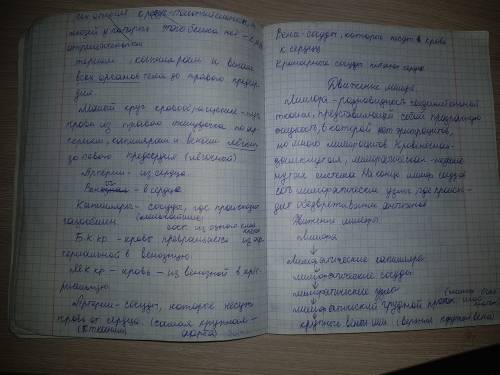 людей у которых этого белка нет –
отрицательной
териям, капиллярам и венам
всех органов тела до правого предсер-
дия.
Малый круг кровообращения – путь
крови из правого желудочка по ар-
териям, капиллярам и венам лёгких
до левого предсердия (лёгочный)
Артерии – из сердца
Вены – в сердце
Капилляры – сосуды, где происходит
газообмен (мельчайшие)
сост. из одного слоя клеток
Б.к.кр – кровь превращается из ар-
териальной в венозную.
М.к.кр – кровь – из венозной в арте-
риальную.
Артерии – сосуды, которые несут
кровь от сердца. (самая крупная –
(к тканям) аорта)
Вена – сосуды, которые несут в кровь
к сердцу
Коронарные сосуды питают сердце
Движение лимфы.
Лимфа – разновидность соединительной
ткани, представляющая собой прозрачную
жидкость, в которой нет эритроцитов,
но много лимфоцитов. Кровеносная –
замкнутая, лимфатическая – незам-
кнутая система. На конце лимф. сосудов
есть лимфатические узлы, где происхо-
дит обезвреживание антигенов
Движение лимфы:
лимфа
↓
лимфатические капилляры
↓
лимфатические сосуды
↓
лимфатические узлы
↓
лимфатический грудной проток
↓
крупные вены шеи (верхняя полая вена)